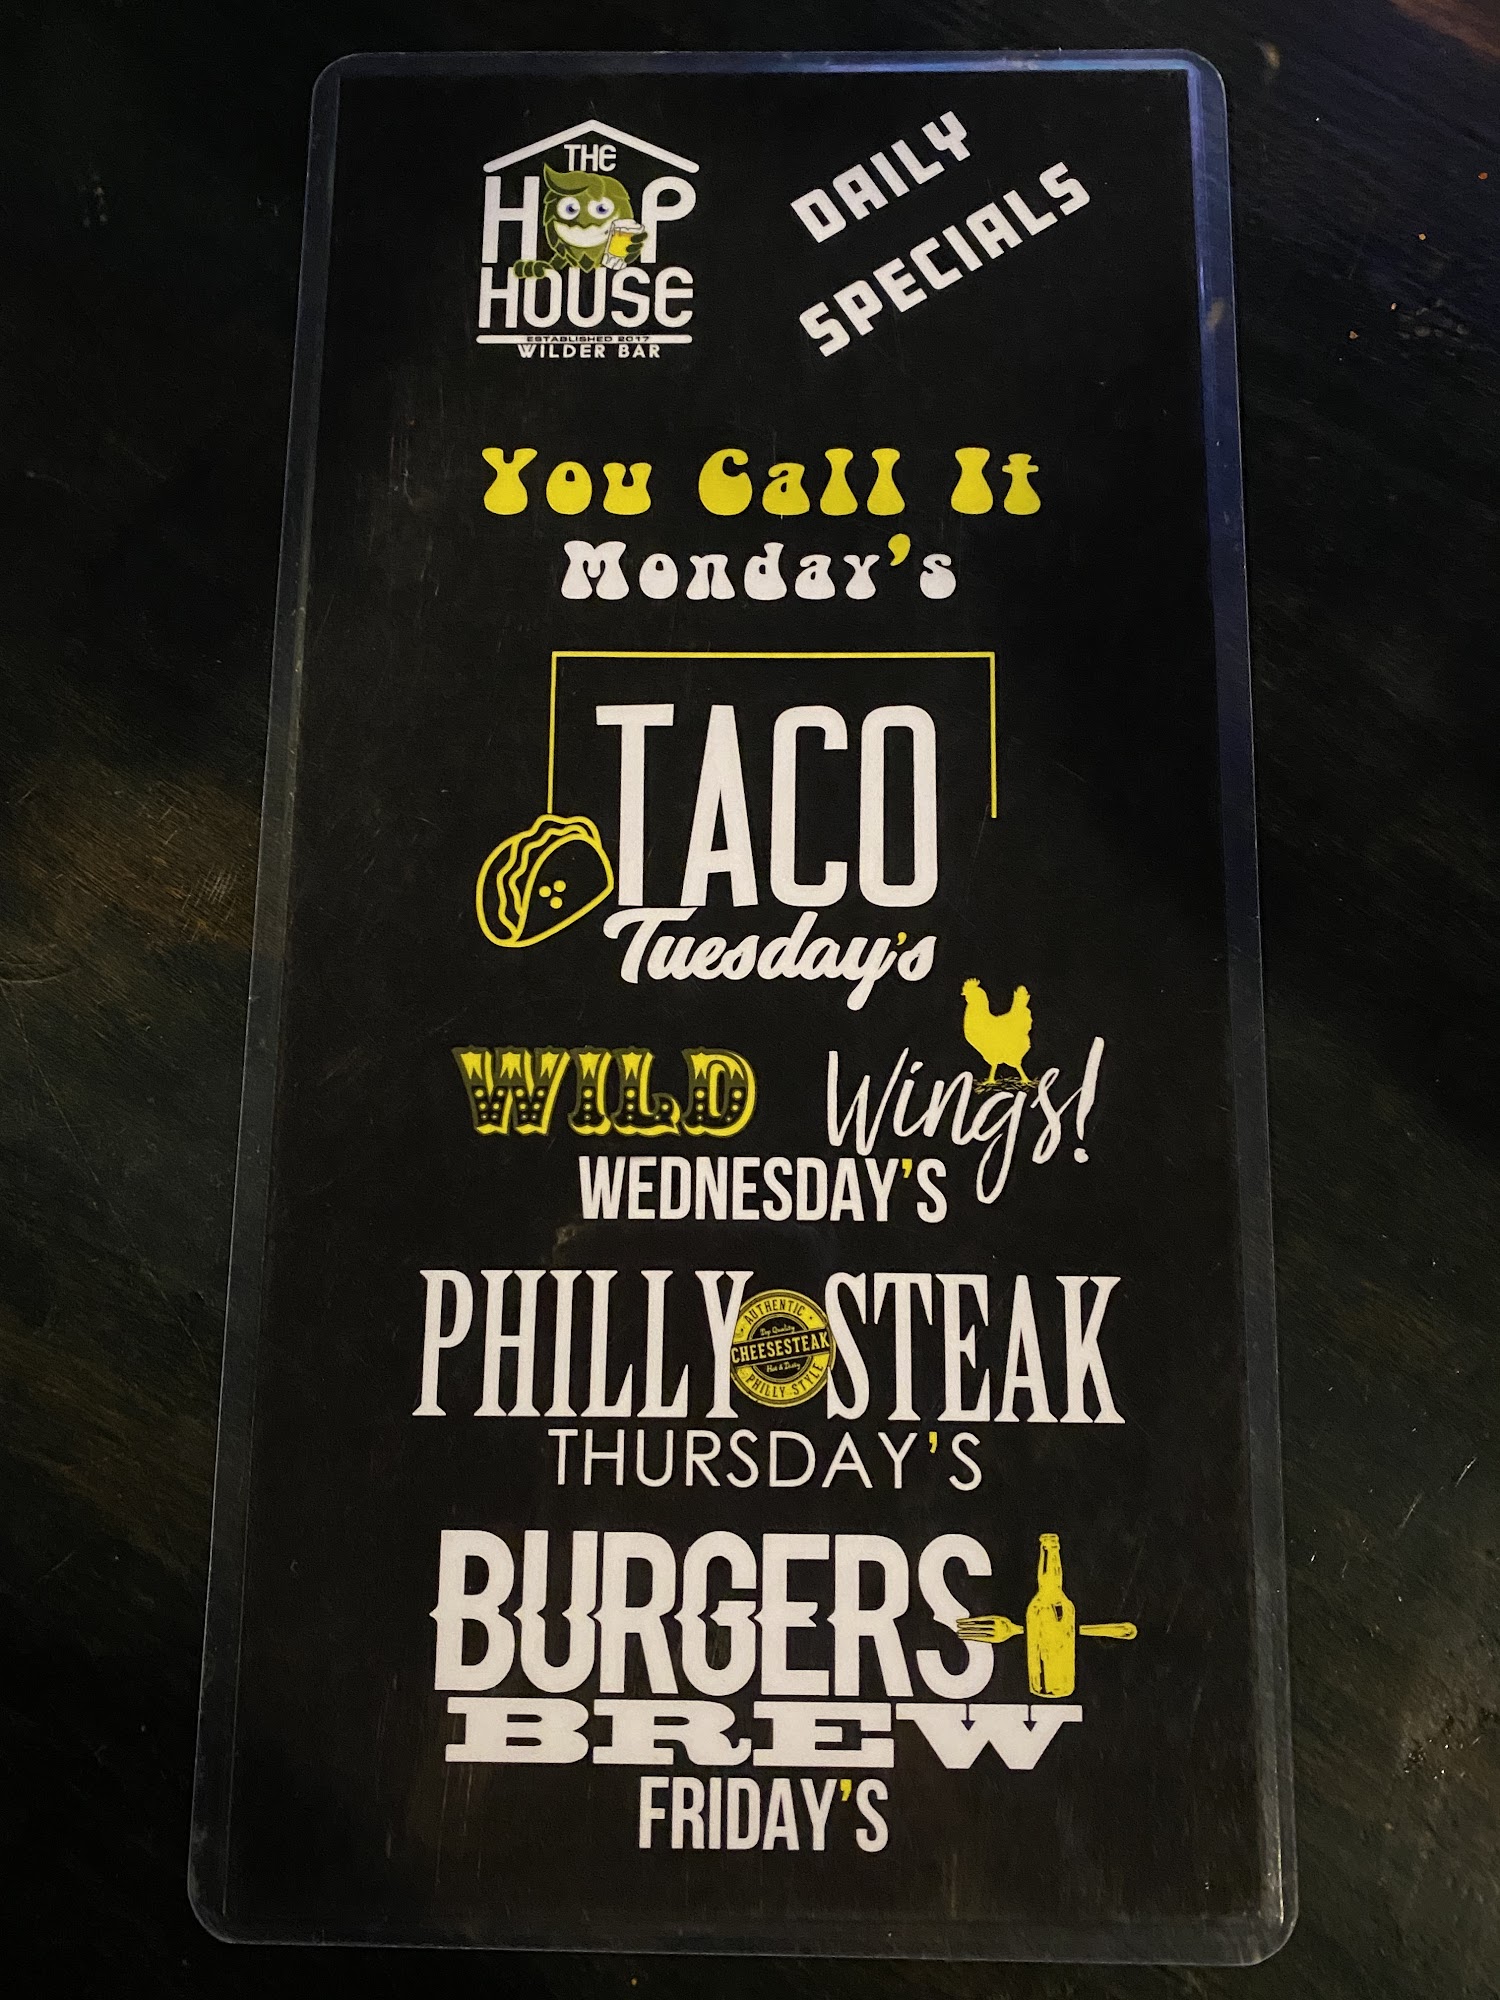 THE
HOP
HOUSE
ESTABLISHED 2017
WILDER BAR
DAILY
SPECIALS
You Call It
Monday's
TACO
Tuesday's
WILD Wings!
WEDNESDAY'S
PHILLY STEAK
AUTHENTIC
Top Quality
CHEESESTEAK
Hot & Tasty
PHILLY STYLE
THURSDAY'S
BURGERS
BREW
FRIDAY'S